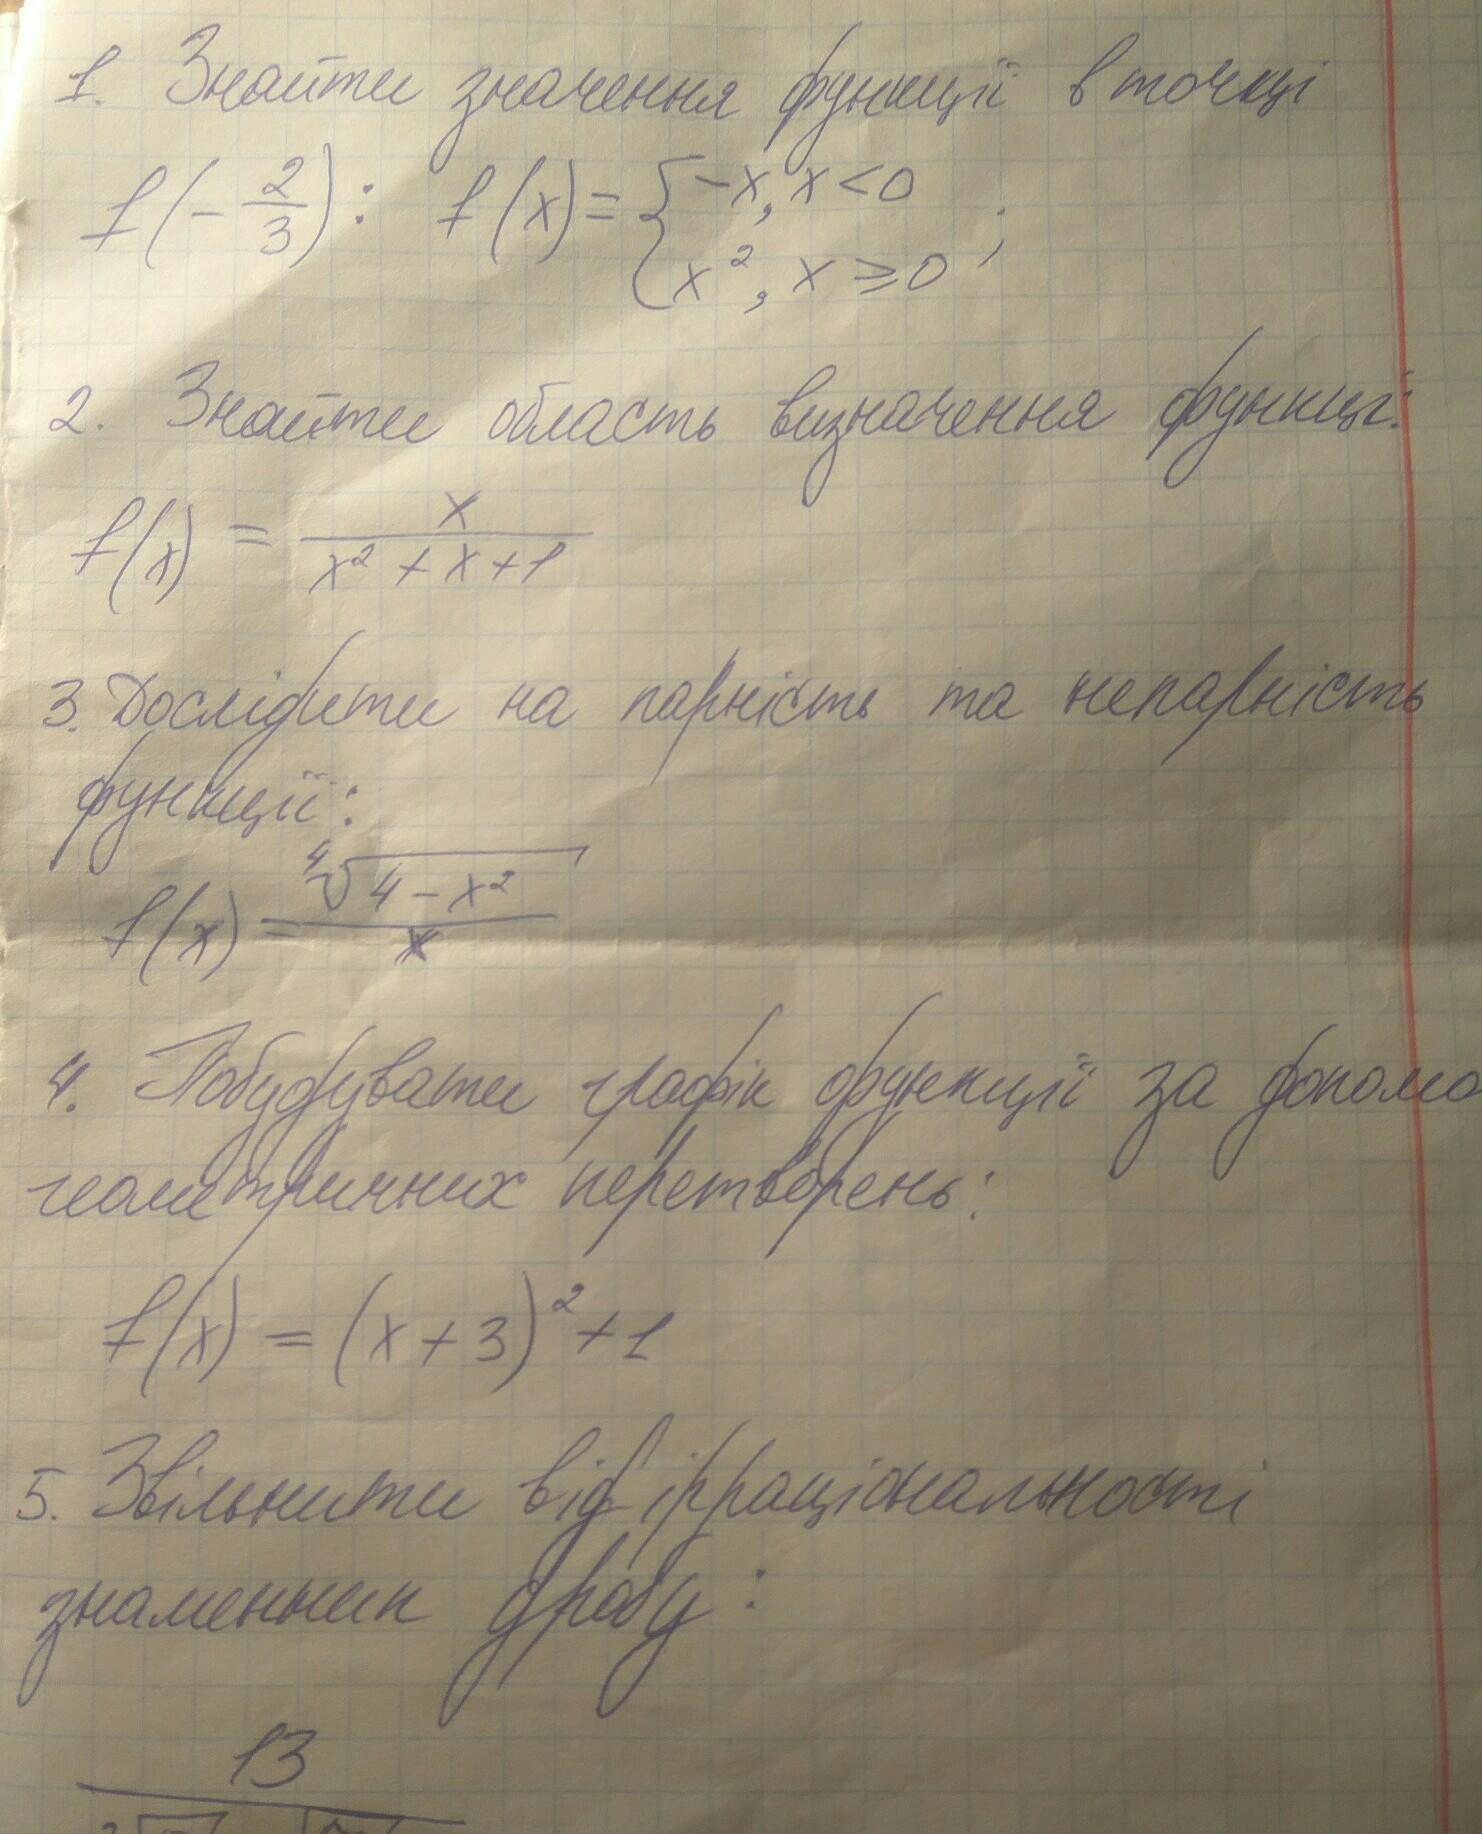 1. Знайти значення функції в точці
f(-2/3): f(x)={-x, x<0
x², x≥0;
2. Знайти область визначення функції:
f(x) = x/(x²+x+1)
3. Дослідити на парність та непарність
функції:
f(x)=⁴√(4-x²)/x
4. Побудувати графік функції за допомо
геометричних перетворень:
f(x) = (x+3)²+1
5. Звільнити від ірраціональності
знаменник дробу:
13